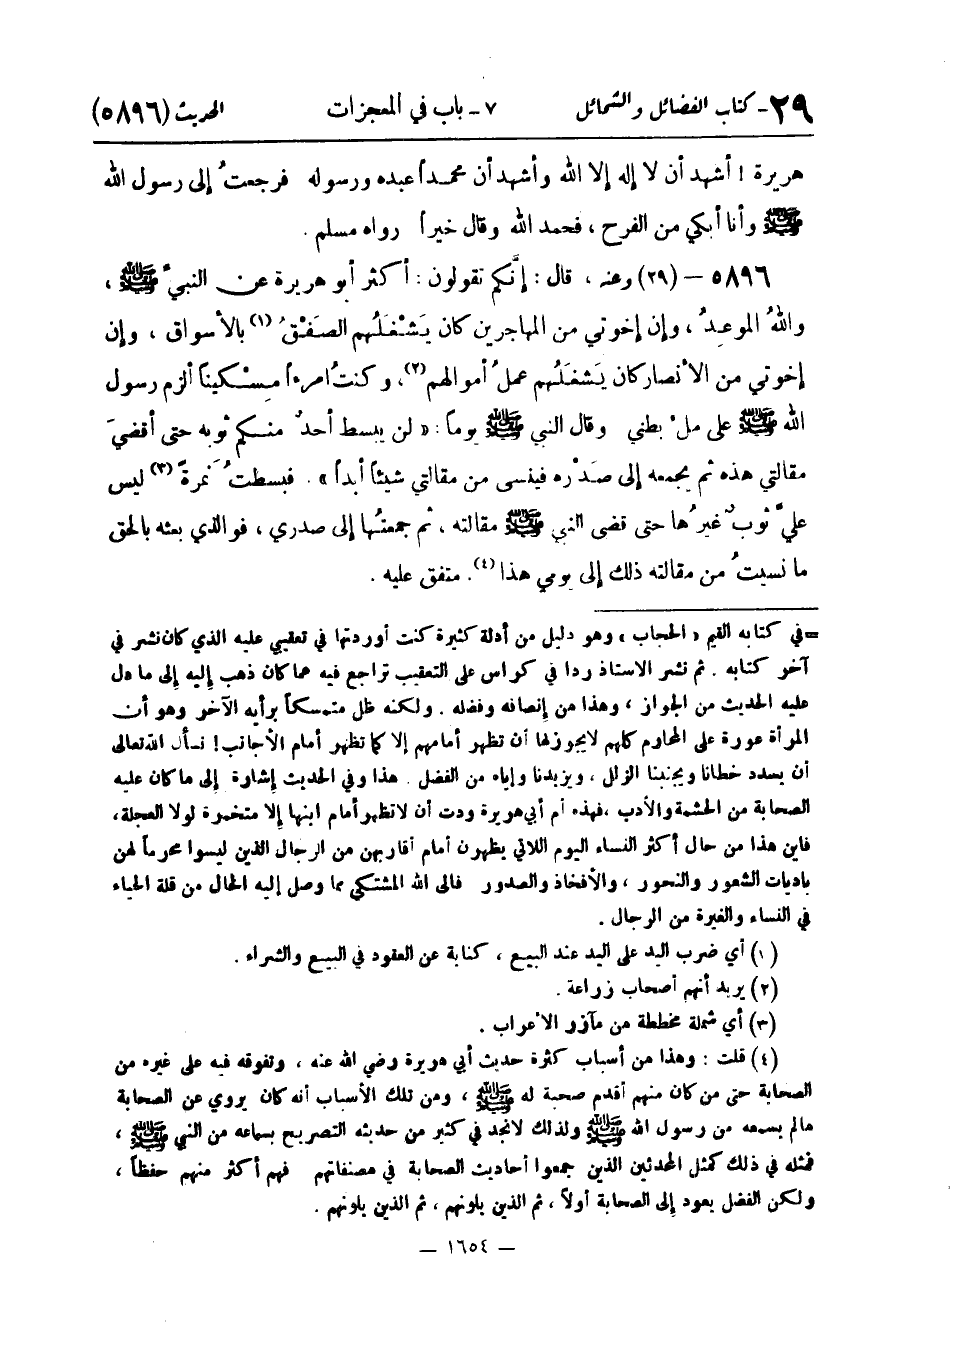 ٢٩- كتاب الفضائل والشمائل ٧ - باب في المعجزات الحديث (٥٨٩٦)
هريرة ! أشهد أن لا إله إلا الله وأشهد أن محمداً عبده ورسوله فرجعتُ إلى رسول الله
ﷺ وأنا أبكي من الفرح ، فحمد الله وقال خيراً رواه مسلم .
٥٨٩٦ – (٢٩) وعنه ، قال : إنَّكم تقولون : أكثر أبو هريرة عن النبيِّ ﷺ ،
واللهُ الموعدُ ، وإن إخوتي من المهاجرين كان يَشْغَلُهم الصَفْقُ (١) بالأسواق ، وإن
إخوتي من الأنصار كان يَشغَلُهم عملُ أموالهم (٢)، وكنتُ امرءاً مِسْكيناً ألزم رسول
الله ﷺ على ملْ بطني وقال النبي ﷺ يوماً : « لن يبسط أحدٌ منكم ثوبه حتى أقضيَ
مقالتي هذه ثم يجمعه إلى صَدْره فينسى من مقالتي شيئاً أبداً » . فبسطتُ نَمرةً (٣) ليس
عليَّ ثوبٌ غيرُها حتى قضى النبي ﷺ مقالته ، ثم جمعتُها إلى صدري ، فوالذي بعثه بالحق
ما نسيتُ من مقالته ذلك إلى يومي هذا (٤). متفق عليه .
=في كتابه القيم « الحجاب » وهو دليل من أدلة كثيرة كنت أوردتها في تعقيبي عليه الذي كان نشر في
آخر كتابه . ثم نشر الاستاذ ردا في كراس على التعقيب تراجع فيه هما كان ذهب إليه إلى ما دل
عليه الحديث من الجواز ، وهذا من إنصافه وفضله . ولكنه ظل متمسكاً برأيه الآخر وهو أن
المرأة عورة على المحارم كلهم لايجوز لها أن تظهر أمامهم إلا كما تظهر أمام الأجانب ! نسأل الله تعالى
أن يسدد خطانا ويجنبنا الزلل ، ويزيدنا وإياه من الفضل . هذا وفي الحديث إشارة إلى ما كان عليه
الصحابة من الحشمة والأدب ، فهذه أم أبي هريرة ودت أن لا تظهر أمام ابنها إلا متخمرة لولا العجلة ،
فاين هذا من حال أكثر النساء اليوم اللاتي يظهرن أمام أقاربهن من الرجال الذين ليسوا محرماً لهن
باديات الشعور والنحور ، والأفخاذ والصدور فالى الله المشتكى مما وصل إليه الحال من قلة الحياء
في النساء والغيرة من الرجال .
(١) أي ضرب اليد على اليد عند البيع ، كناية عن العقود في البيع والشراء .
(٢) يريد أنهم أصحاب زراعة .
(٣) أي شملة مخططة من مآزر الأعراب .
(٤) قلت : وهذا من أسباب كثرة حديث أبي هريرة رضي الله عنه ، وتفوقه فيه على غيره من
الصحابة حتى من كان منهم أقدم صحبة له ﷺ ، ومن تلك الأسباب أنه كان يروي عن الصحابة
مالم يسمعه من رسول الله ﷺ ولذلك لانجد في كثير من حديثه التصريح بسماعه من النبي ﷺ ،
فمثله في ذلك كمثل المحدثين الذين جمعوا أحاديث الصحابة في مصنفاتهم فهم أكثر منهم حفظاً ،
ولكن الفضل يعود إلى الصحابة أولاً ، ثم الذين يلونهم ، ثم الذين يلونهم .
– ١٦٥٤ –